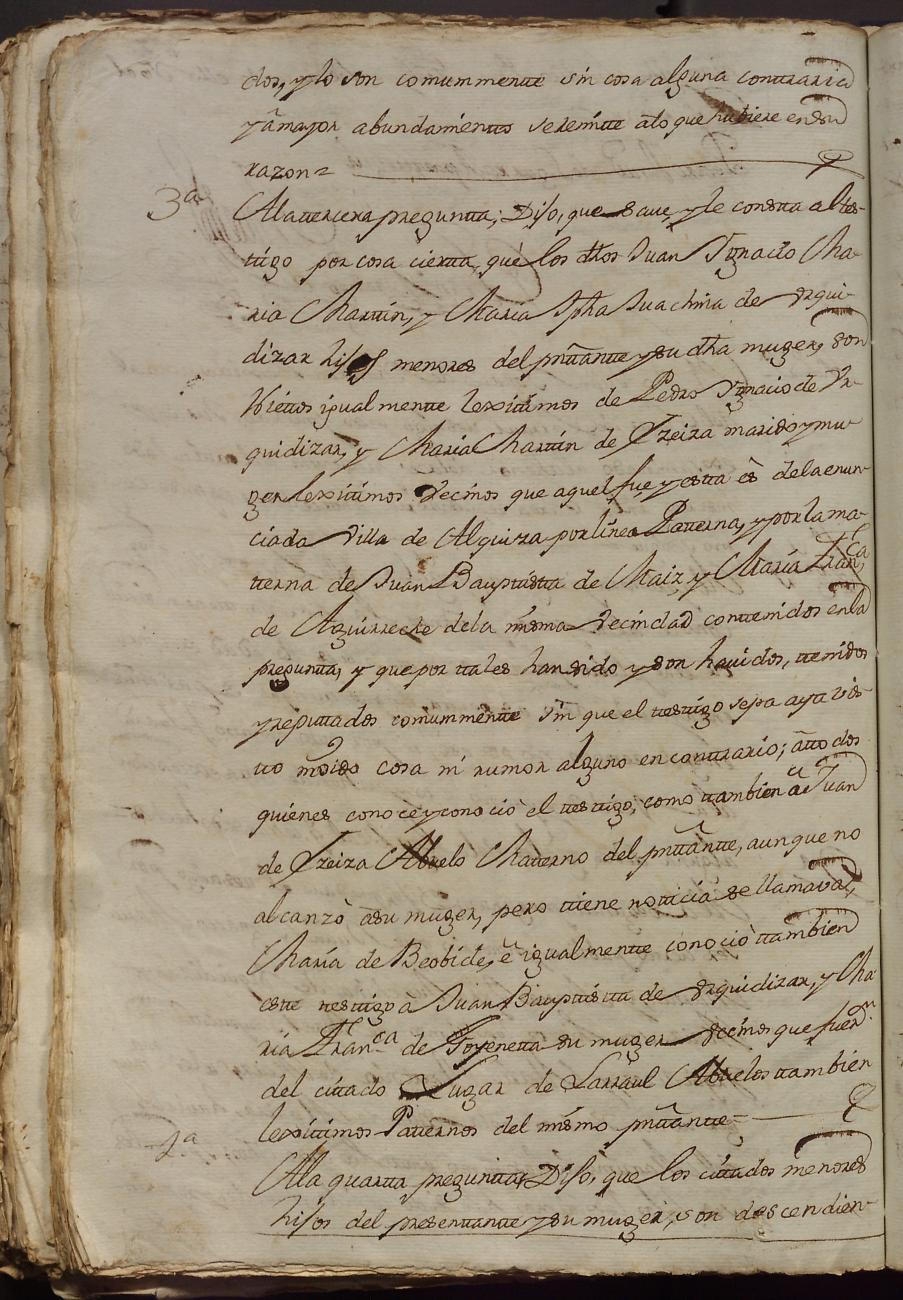 dos, y lo son comunmmente sin cosa alguna contraria
y â mayor abundamientto se remitte â lo que hubiere en su
razon=
3ª
A la ttercera preguntta; Dijo, que save, y le constta al tes-
ttigo por cosa ciertta, què los dhos Juan Ygnacio Ma-
ria Marttin, y María Jpha Juachina de Urqui-
dizar hijos menores del prêttante y su dha muger, son
Niettos igualmentte lexitimos de Pedro Ygnacio de Ur-
quidizar, y María Marttin de Yzeiza marido y mu-
ger lexitimos Vecinos que aquel fue, y estta ês de la enun-
ciada Villa de Alquiza por línea Patterna, y por la ma-
tterna de Juan Bauptistta de Maiz, y María Franca
de Aguirreche de la misma Vecindad conttenidos en la
pregunta, y que por ttales han sido y son havidos, ttenidos
y reputtados comummentte sin que el testtigo sepa aya vis-
tto ni oido cosa ni rumor alguno en conttrario; â ttodos
quienes conoce y conociò el ttesttigo; como ttambien â Juan
de Yzeiza Abuelo Matterno del prêttantte, aunque no
alcanzò a su muger, pero ttiene notticia se llamava,
María de Beobide, ê igualmentte conociò ttambien
estte testtigo à Juan Bauptistta de Urquidizar, y Ma-
ría Franca de Goyenetta su muger Vecinos que fueron
del cittado Lugar de Larraul Abuelos ttambien
lexítimos Patternos del mismo prêttantte=
4ª
A la quartta pregunta, Dijo, que los cittados menores
hijos del presenttantte y su muger, son descendien-